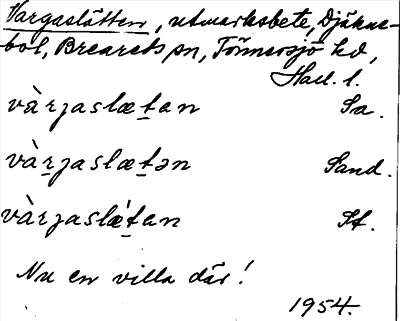 Vargaslätten, utmarksbete, Djäkne-
böl, Breareds sn, Tönnersjö hd,
Hall. l.
vàrgaslætan Sa.
vàrgaslætən Sand.
vàrgaslǽtan St.
Nu en villa där!
1954.